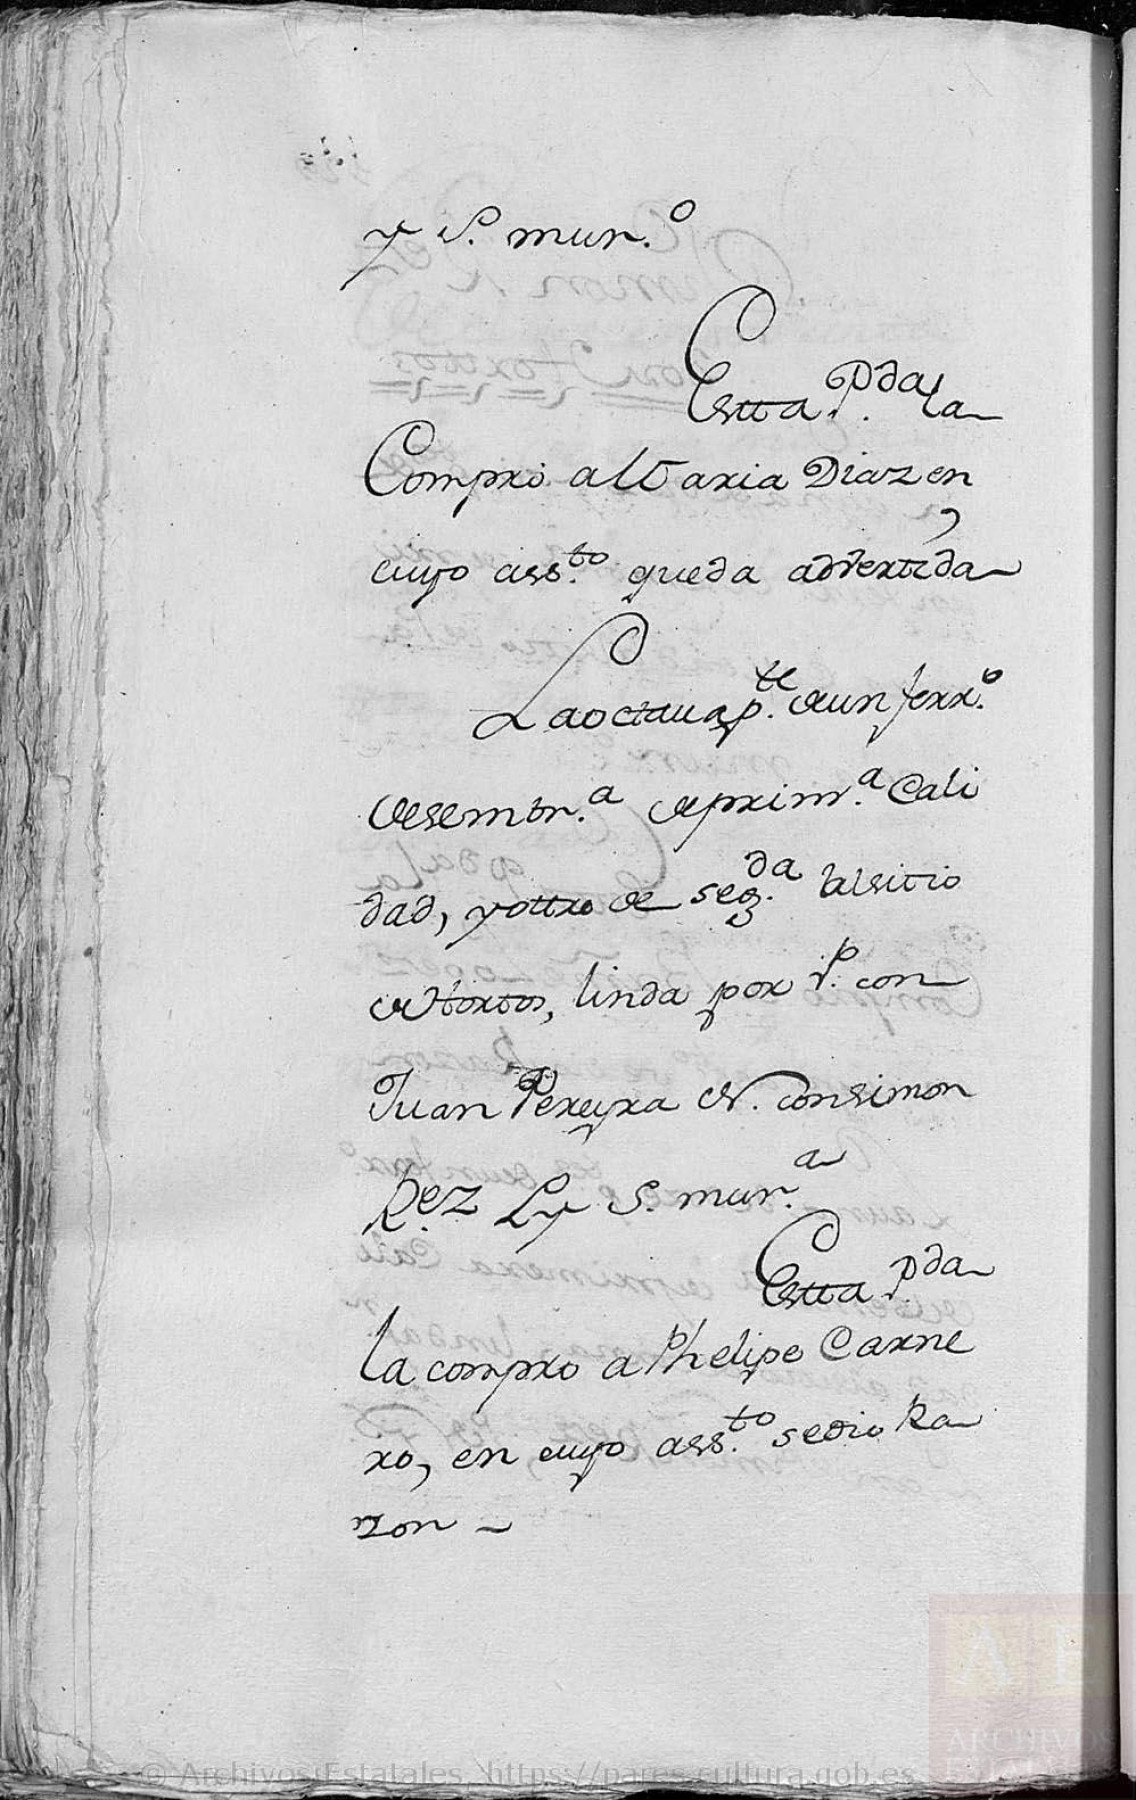 y S. mur.º
Estta P.da la
Compro a Maria Diaz en
cuyo ass.to queda advertida
La octava p.te de un ferr.º
de sembr.a de prim.a Cali
dad, y ottro de seg.da al sitio
de Hortos, linda por P. con
Juan Pereyra N. con Simon
Rez L y S. mur.a
Estta P.da
la compro a Phelipe Carne
ro, en cuyo ass.to se dio Ra
zon -
© ArchivosEstatales, https://pares.cultura.gob.es
AE
ARCHIVOS